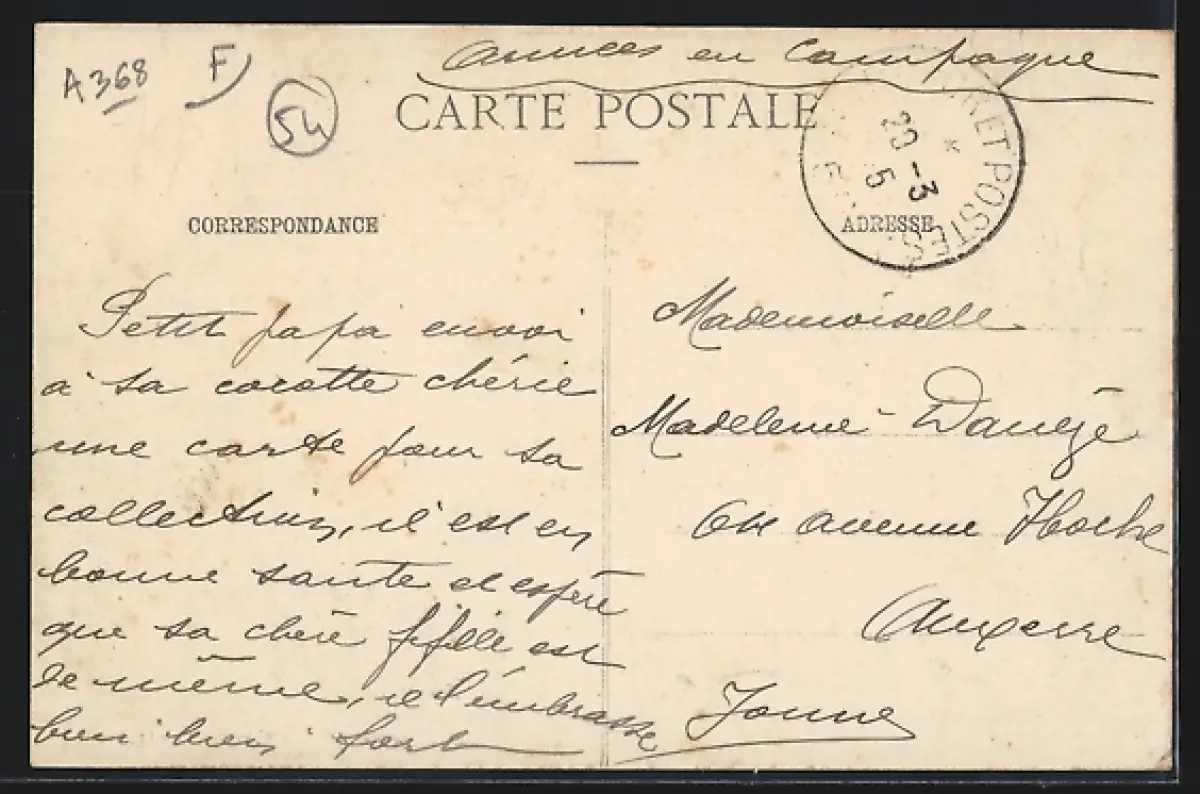 A368 F 54
armées en Campagne
CARTE POSTALE
RET POSTES
29 -3
15
CORRESPONDANCE
ADRESSE
Petit papa envoi
à sa cocotte chérie
une carte pour sa
collection, il est en
bonne santé et espère
que sa chère fifille est
de même, il l'embrasse
bien bien fort
Mademoiselle
Madeleine
avenue Hoche
Auxerre
Yonne